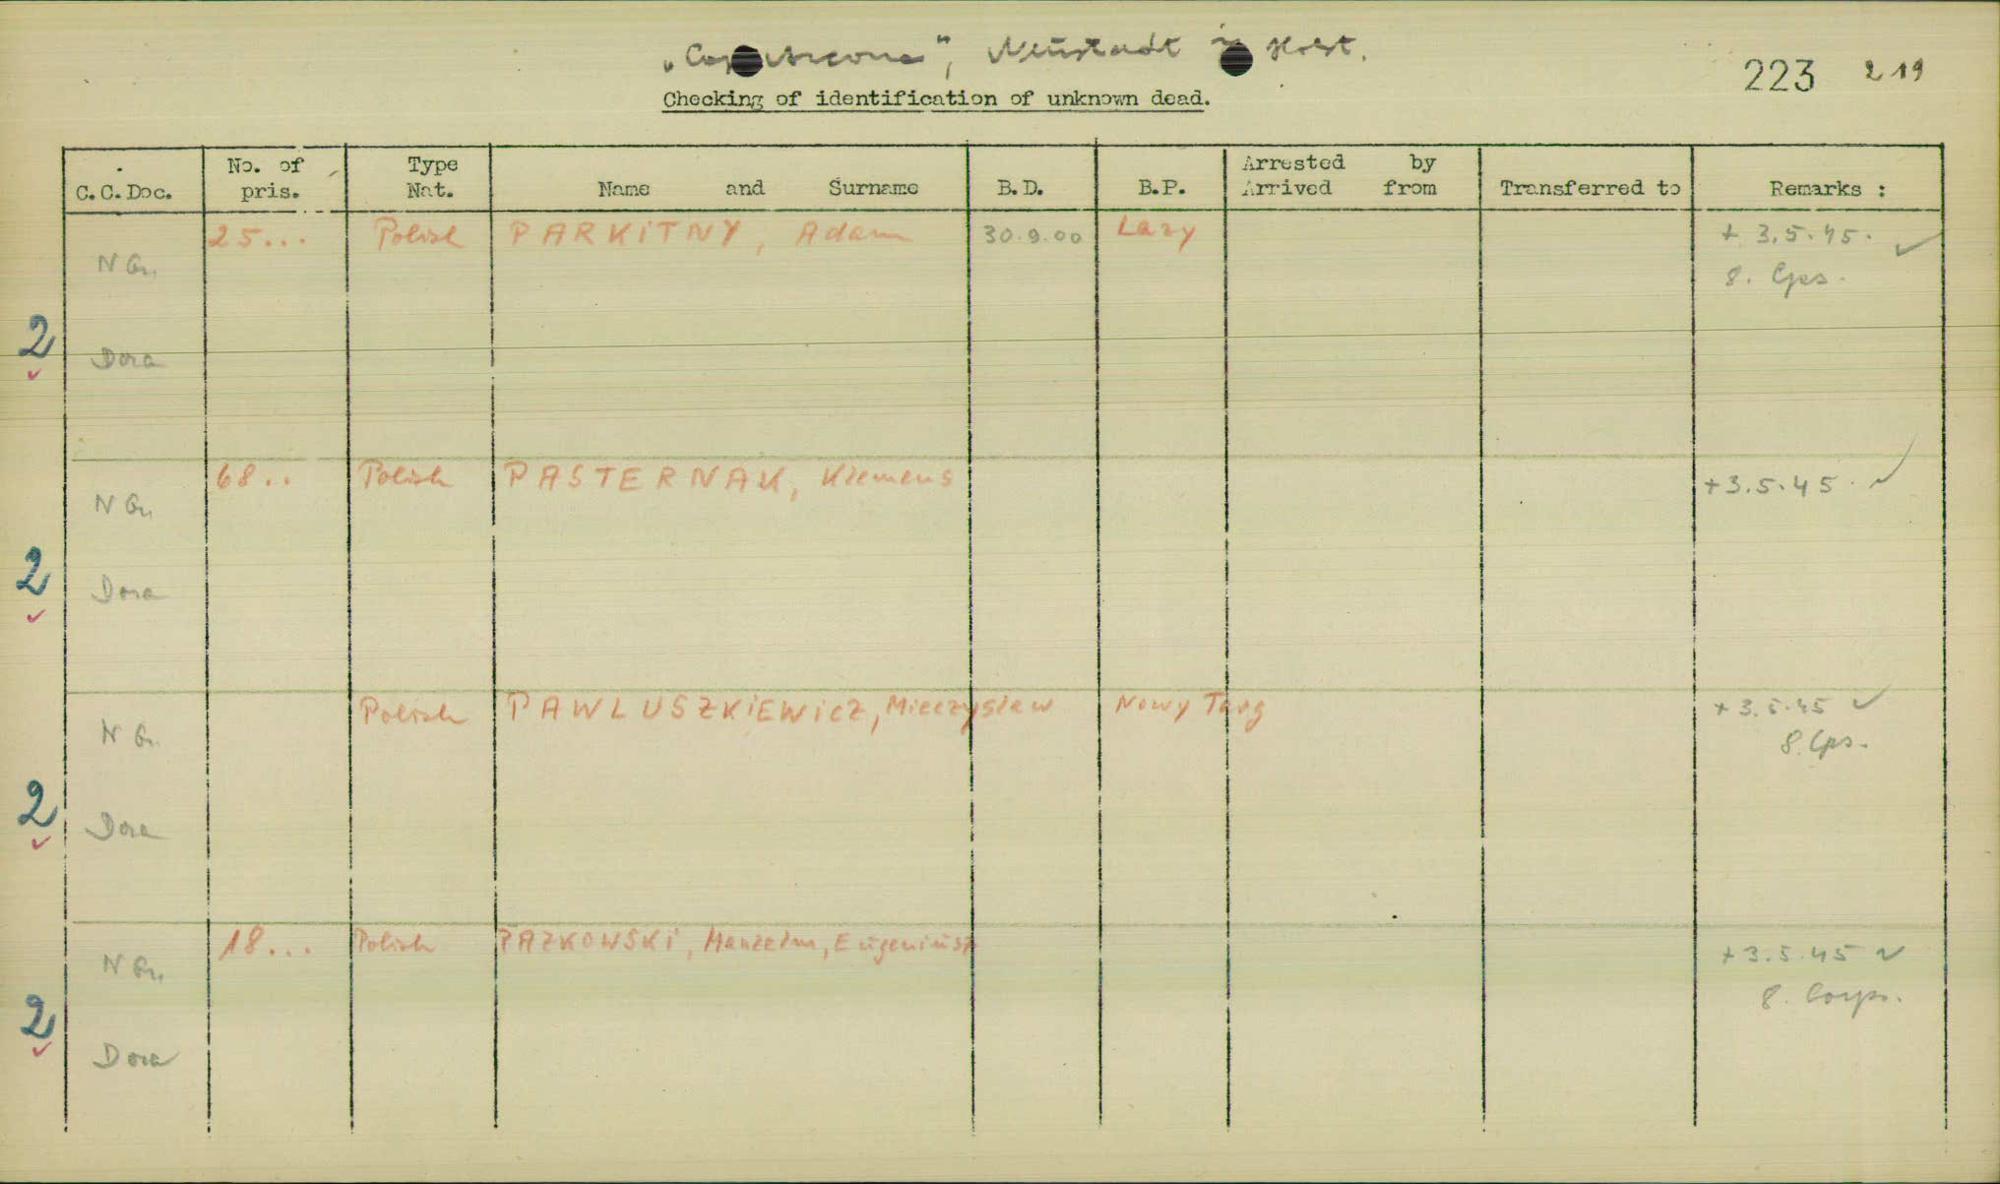 „Cap Arcona", Neustadt in Holst.
223 219
Checking of identification of unknown dead.
C.C.Doc. No. of pris. Type Nat. Name and Surname B.D. B.P. Arrested by Arrived from Transferred to Remarks :
25... Polish PARKITNY, Adam 30.9.00 Lazy + 3.5.45.
N Gr. 8. Cps.
2 Dora
68.. Polish PASTERNAK, Klemens +3.5.45.
N Gr.
2 Dora
Polish PAWLUSZKIEWICZ, Mieczyslaw Nowy Targ +3.5.45
N Gr. 8. Cps.
2 Dora
18... Polish PAZKOWSKI, Eugeniusz +3.5.45
N Gr. 8. Corps.
2 Dora